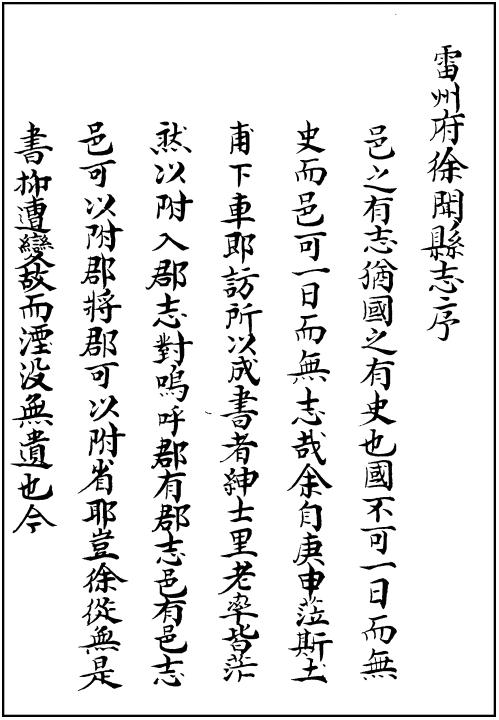 雷州府徐聞縣志序
邑之有志猶國之有史也國不可一日而無
史而邑可一日而無志哉余自庚申蒞斯土
甫下車郎訪所以成書者紳士里老率皆茫
然以附入郡志對嗚呼郡有郡志邑有邑志
邑可以附郡將郡可以附省耶豈徐從無是
書抑遭變故而湮没無遺也今